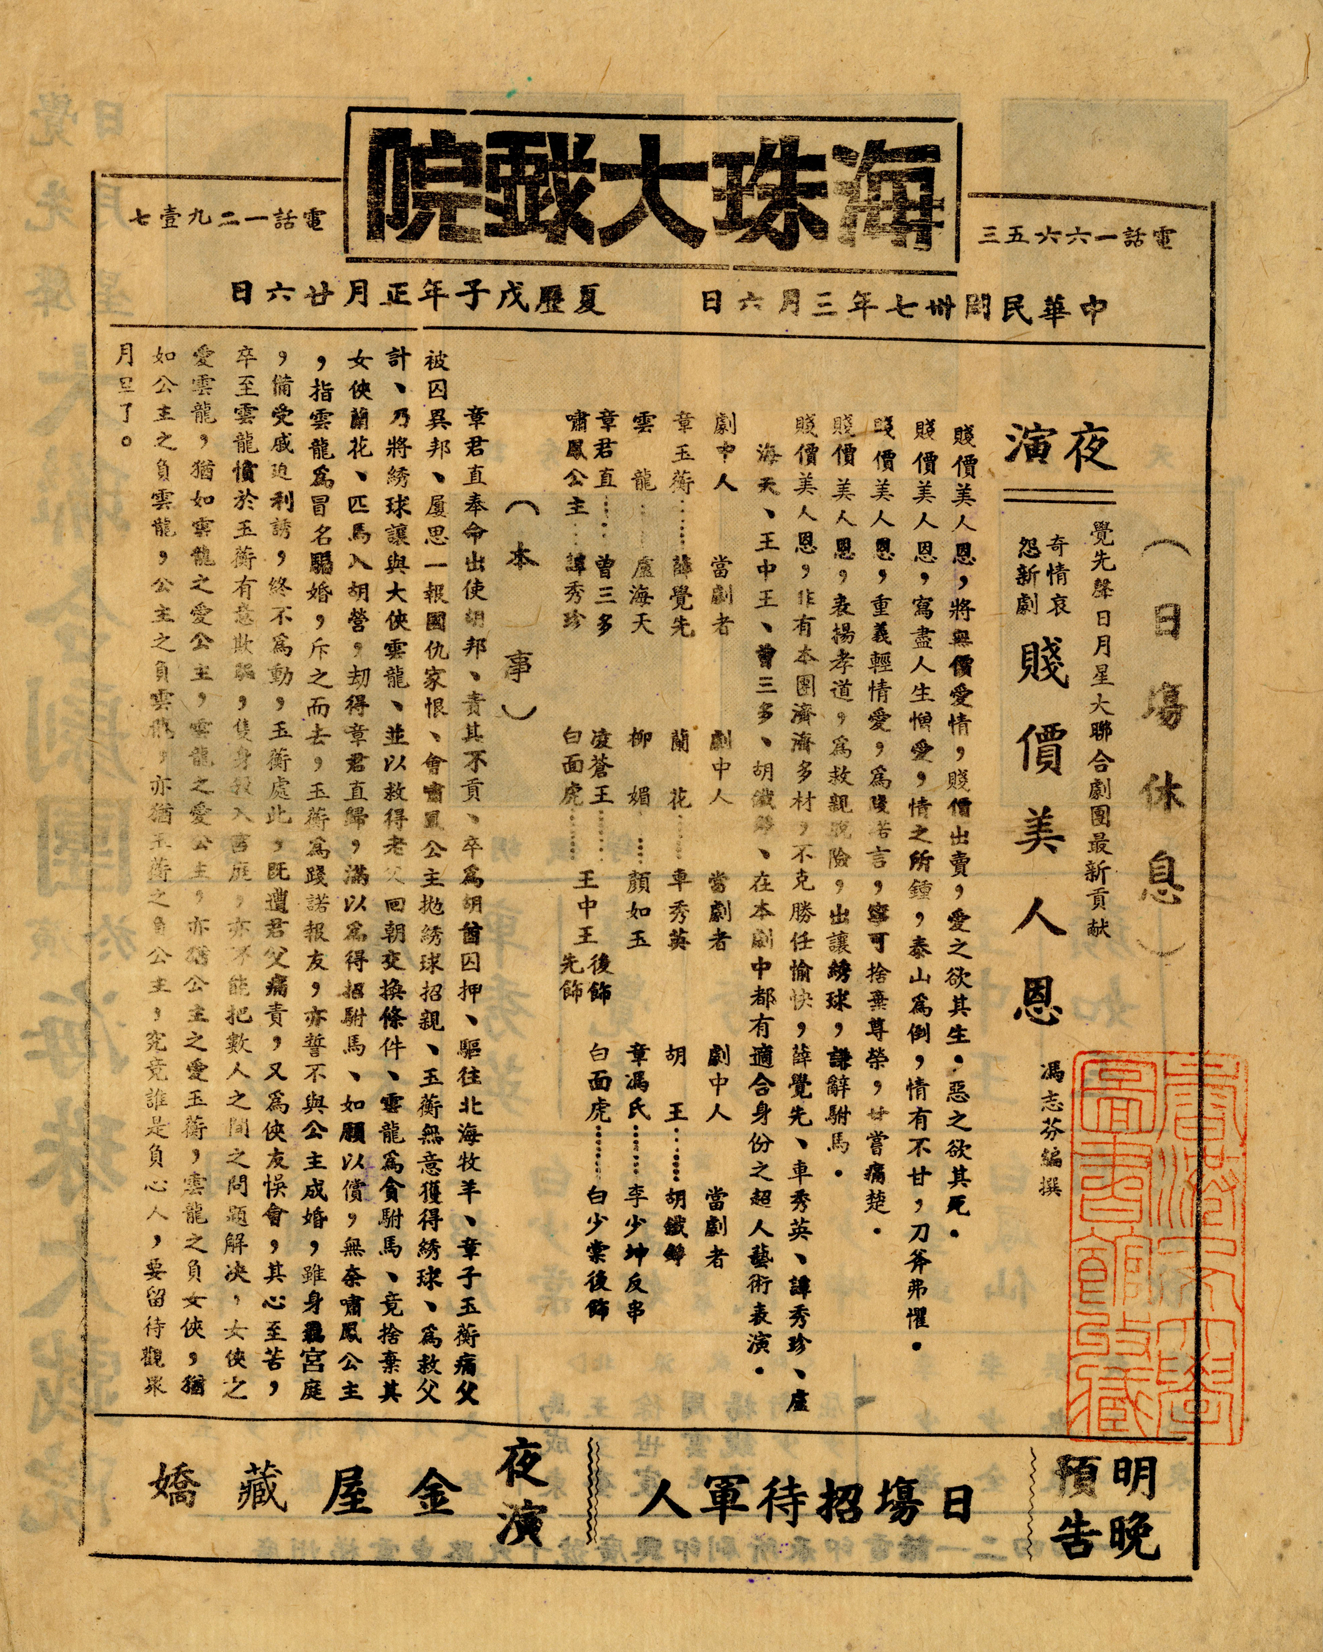 海珠大戲院
電話一六六五三
電話一二九壹七
中華民國卅七年三月六日
夏歷戊子年正月廿六日
（日塲休息）
夜演
覺先聲日月星大聯合劇團最新貢献
奇情哀
怨新劇
賤價美人恩
馮志芬編撰
賤價美人恩，將無價愛情，賤價出賣，愛之欲其生．惡之欲其死．
賤價美人恩，寫盡人生憎愛，情之所鍾，泰山爲倒，情有不甘，刀斧弗懼．
賤價美人恩，重義輕情愛，爲踐若言，寧可捨棄尊榮，甘嘗痛楚．
賤價美人恩，表揚孝道，爲救親脫險，出讓綉球，謙辭駙馬．
賤價美人恩，非有本團濟濟多材，不克勝任愉快，薛覺先、車秀英、譚秀珍、盧
海天、王中王、曾三多、胡鐵錚、在本劇中都有適合身份之超人藝術表演．
劇中人　當劇者　劇中人　當劇者　劇中人　當劇者
章玉蘅……薛覺先　蘭花……車秀英　胡王……胡鐵錚
雲龍……盧海天　柳媚……顏如玉　章馮氏……李少坤反串
章君直……曾三多　凌蒼王……王中王後飾　白面虎……白少棠後飾
嘯鳳公主…譚秀珍　白面虎……王中王先飾
（本事）
章君直奉命出使胡邦、責其不貢、卒爲胡酋囚押、驅往北海牧羊、章子玉蘅痛父
被囚異邦、屢思一報國仇家恨、會嘯鳳公主拋綉球招親、玉蘅無意獲得綉球、爲救父
計、乃將綉球讓與大俠雲龍、並以救得老父回朝交換條件、雲龍爲貪駙馬、竟捨棄其
女俠蘭花、匹馬入胡營，刧得章君直歸，滿以爲得招駙馬、如願以償，無奈嘯鳳公主
，指雲龍爲冒名騙婚，斥之而去，玉蘅爲踐諾報友，亦誓不與公主成婚，雖身羈宮庭
，備受威迫利誘，終不爲動，玉蘅處此，旣遭君父痛責，又爲俠友悞會，其心至苦，
卒至雲龍憤於玉蘅有意欺騙，隻身殺入宮庭，亦不能把數人之間之問題解决，女俠之
愛雲龍，猶如雲龍之愛公主，雲龍之愛公主，亦猶公主之愛玉蘅，雲龍之負女俠，猶
如公主之負雲龍，公主之負雲龍，亦猶玉蘅之負公主，究竟誰是負心人，要留待觀衆
月旦了。
明晚
預告
日塲招待軍人
夜演
金屋藏嬌